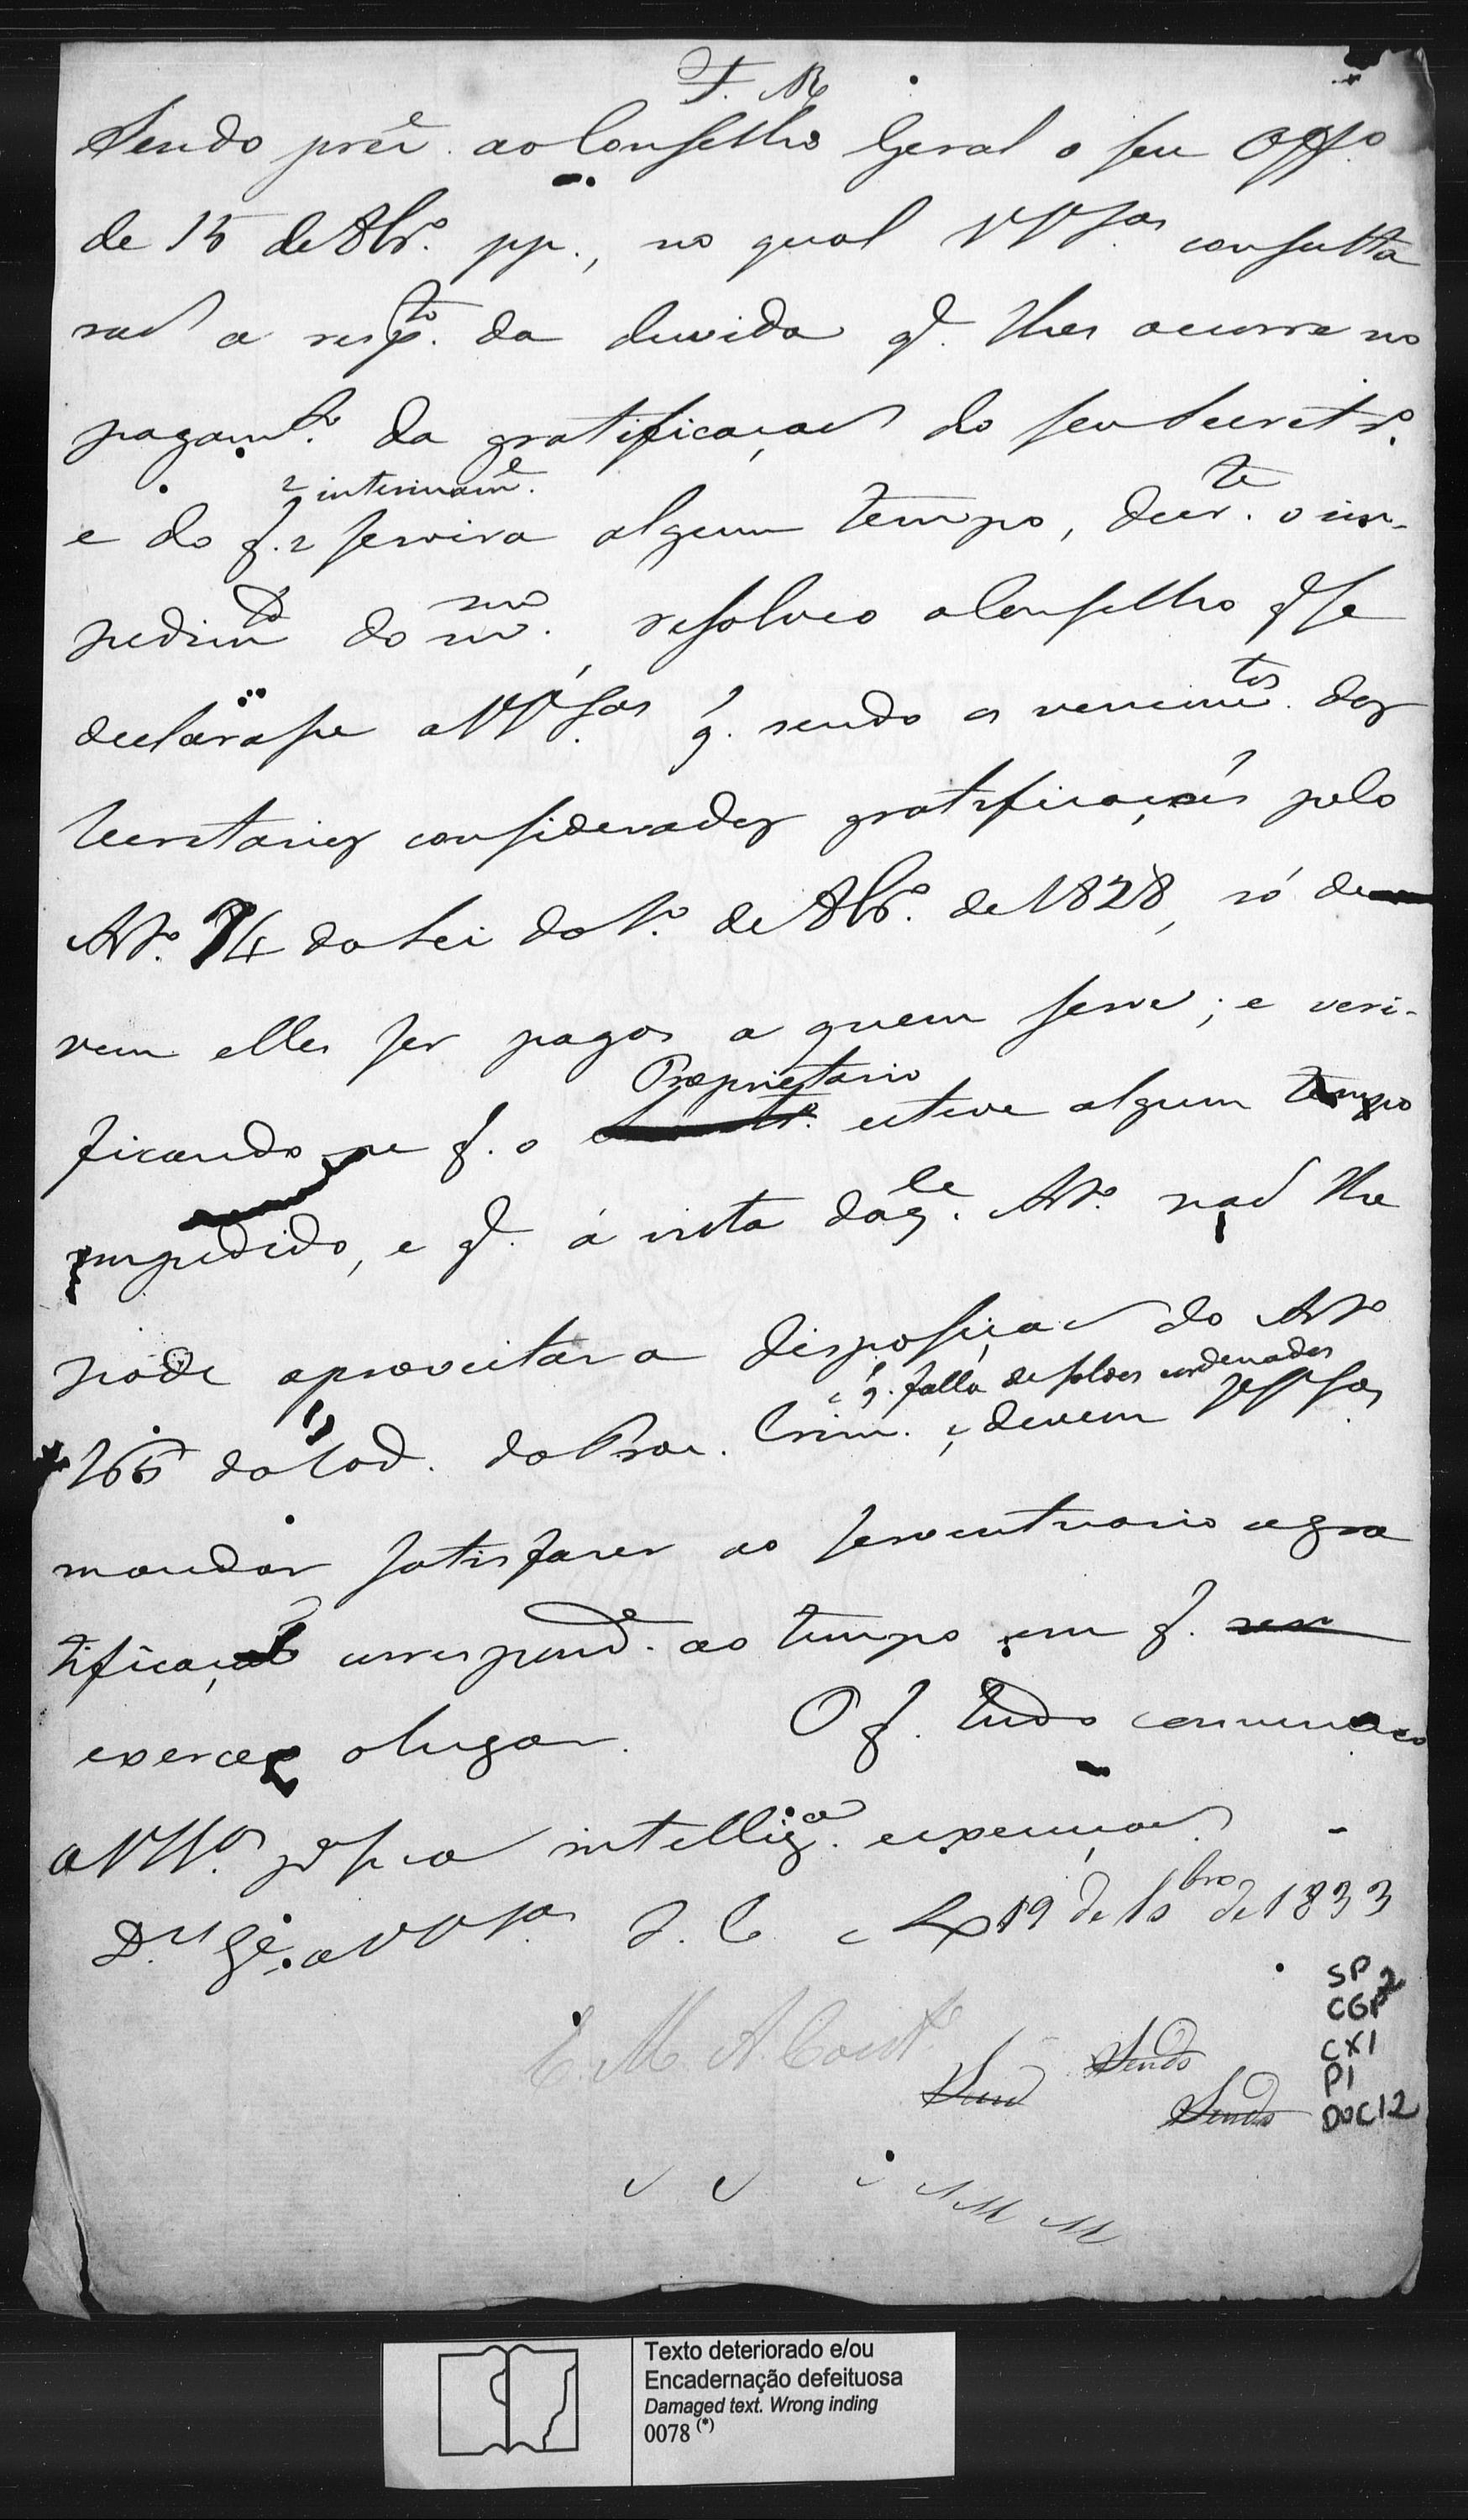 Sendo pres.e ao Conselho Geral o seu Off.o
de 15 de 8br.o pp., no qual VV S.as consulta
raõ a resp.to da duvida q. lhes ocorre no
pagam.to da gratificaçaõ do seu Secretr.o
interinam.e
e do q. servira algum tempo, dur.te o im-
pedim.to do m.mo, resolveo o Conselho q se
declarasse a VV S.as q. sendo os vencim.tos dos
Secretarios considerados gratificaçoẽs pelo
Art.o 74 da Lei do 1.o de 8br.o de 1828, só de
vem elles ser pagos a quem serve; e veri-
Proprietario
ficando se q. o esteve algum tempo
impedido, e q. á vista daq.le Art.o naõ lhe
pode aproveitar a disposiçaõ do Art.o
q. falla de ordenados
165 do Cod. do Proc. Crim. devem VV S.as
mandar satisfazer ao serventuario a gra
tificaçaõ correspond.e ao tempo em q.
exerceo o lugar. O q. tudo communico
a VV S.as p.a sua intellig.a e execuçaõ.
D.s G.e a VV S.as 19 de 1833
E. M. A. Cout.o
Send Sendo
Sendo
SP
CGP2
CX1
P1
DOC12
Texto deteriorado e/ou
Encadernação defeituosa
Damaged text. Wrong inding
0078 (*)